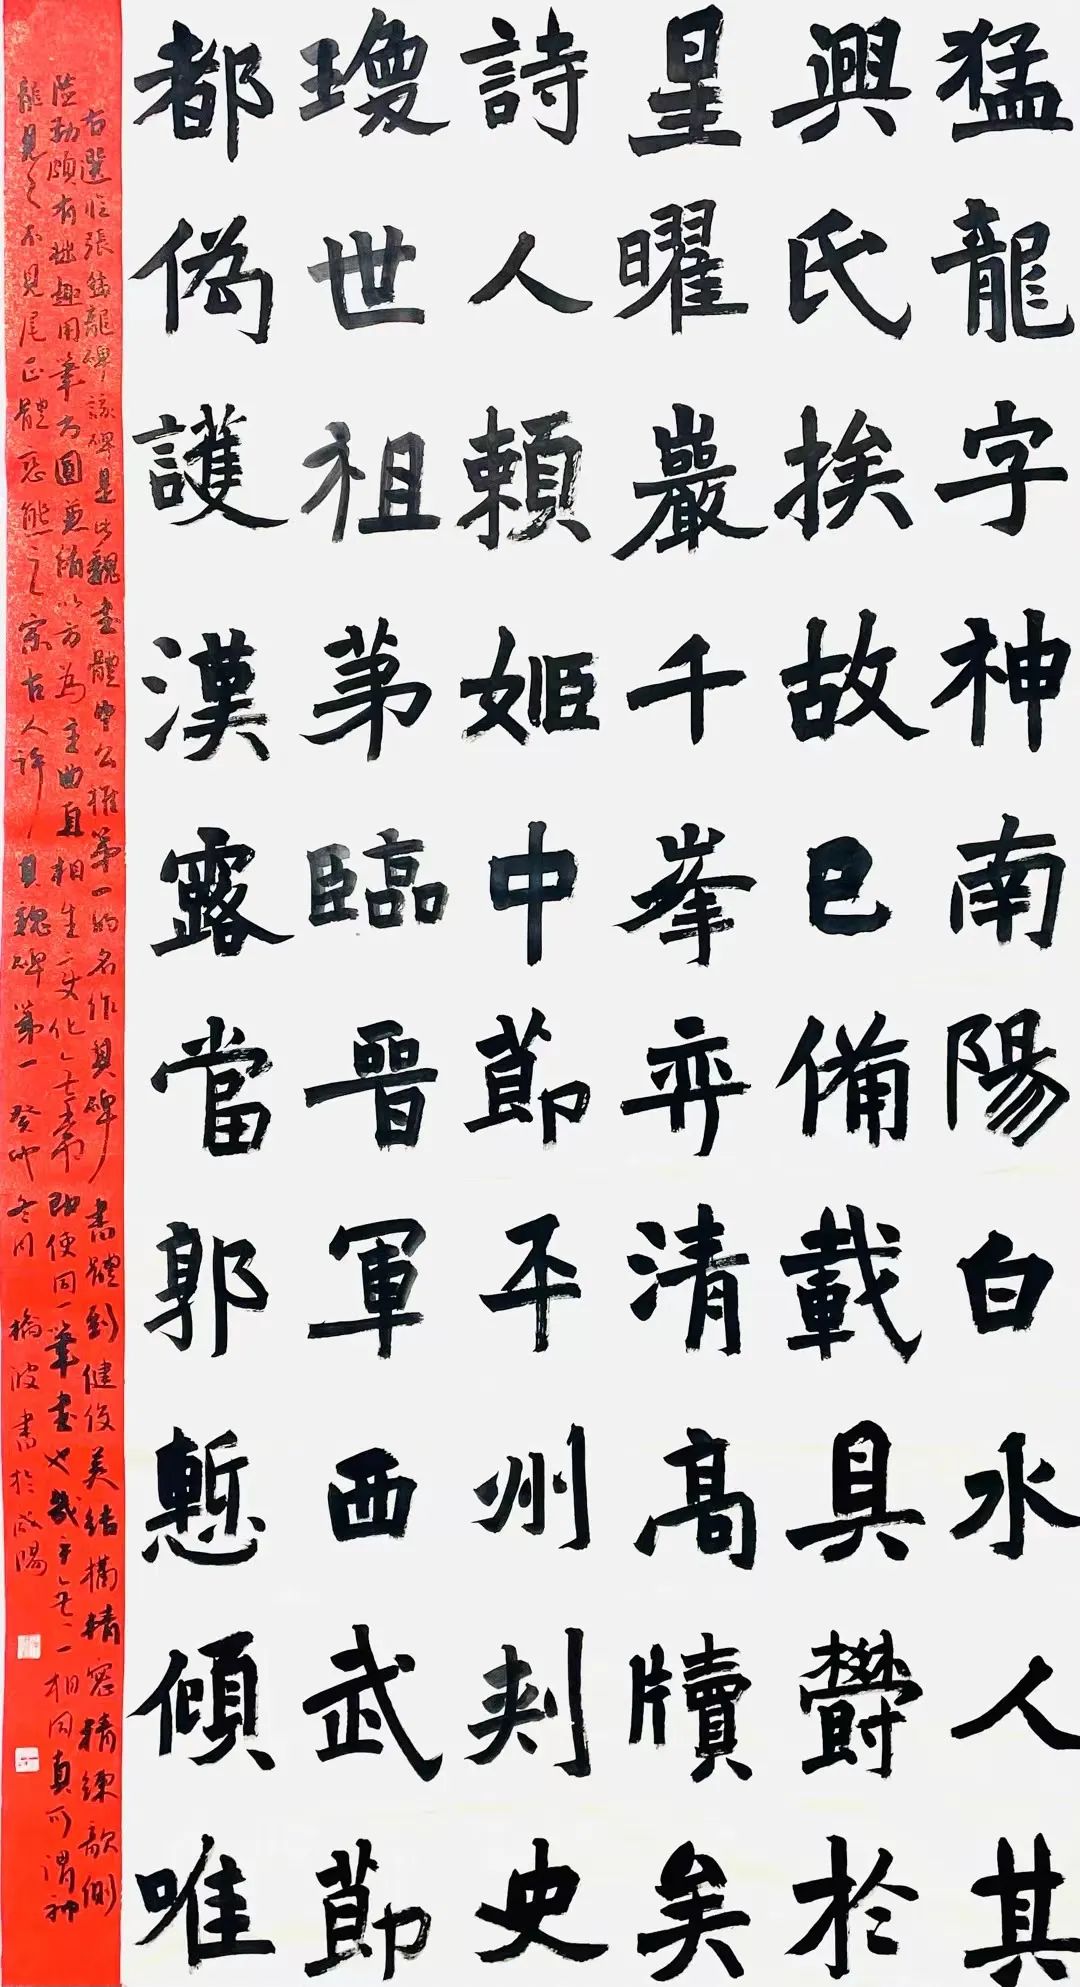 猛龍字神南陽白水人其
興氏挨故已備載具欝於
皇曜巖千峯弈清高牘矣
詩人頼姬中莭丕州刾史
瓊世祖苐臨晉軍西武莭
都偽護漢露當郭慙傾唯
右選临張猛龍碑該碑是北魏書體中公推第一的名作其碑書體勁健俊美結構精密精練欹側
險勁頗有拙趣用筆方圓並備以方為主曲直相生变化即使同一筆畫也幾乎无一相同真可謂神
龍見首不見尾正體变態之宗古人許其魏碑第一 癸卯冬月 橋波書於咸陽